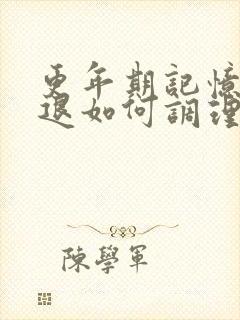 更年期記憶
退如何調理
陳學軍